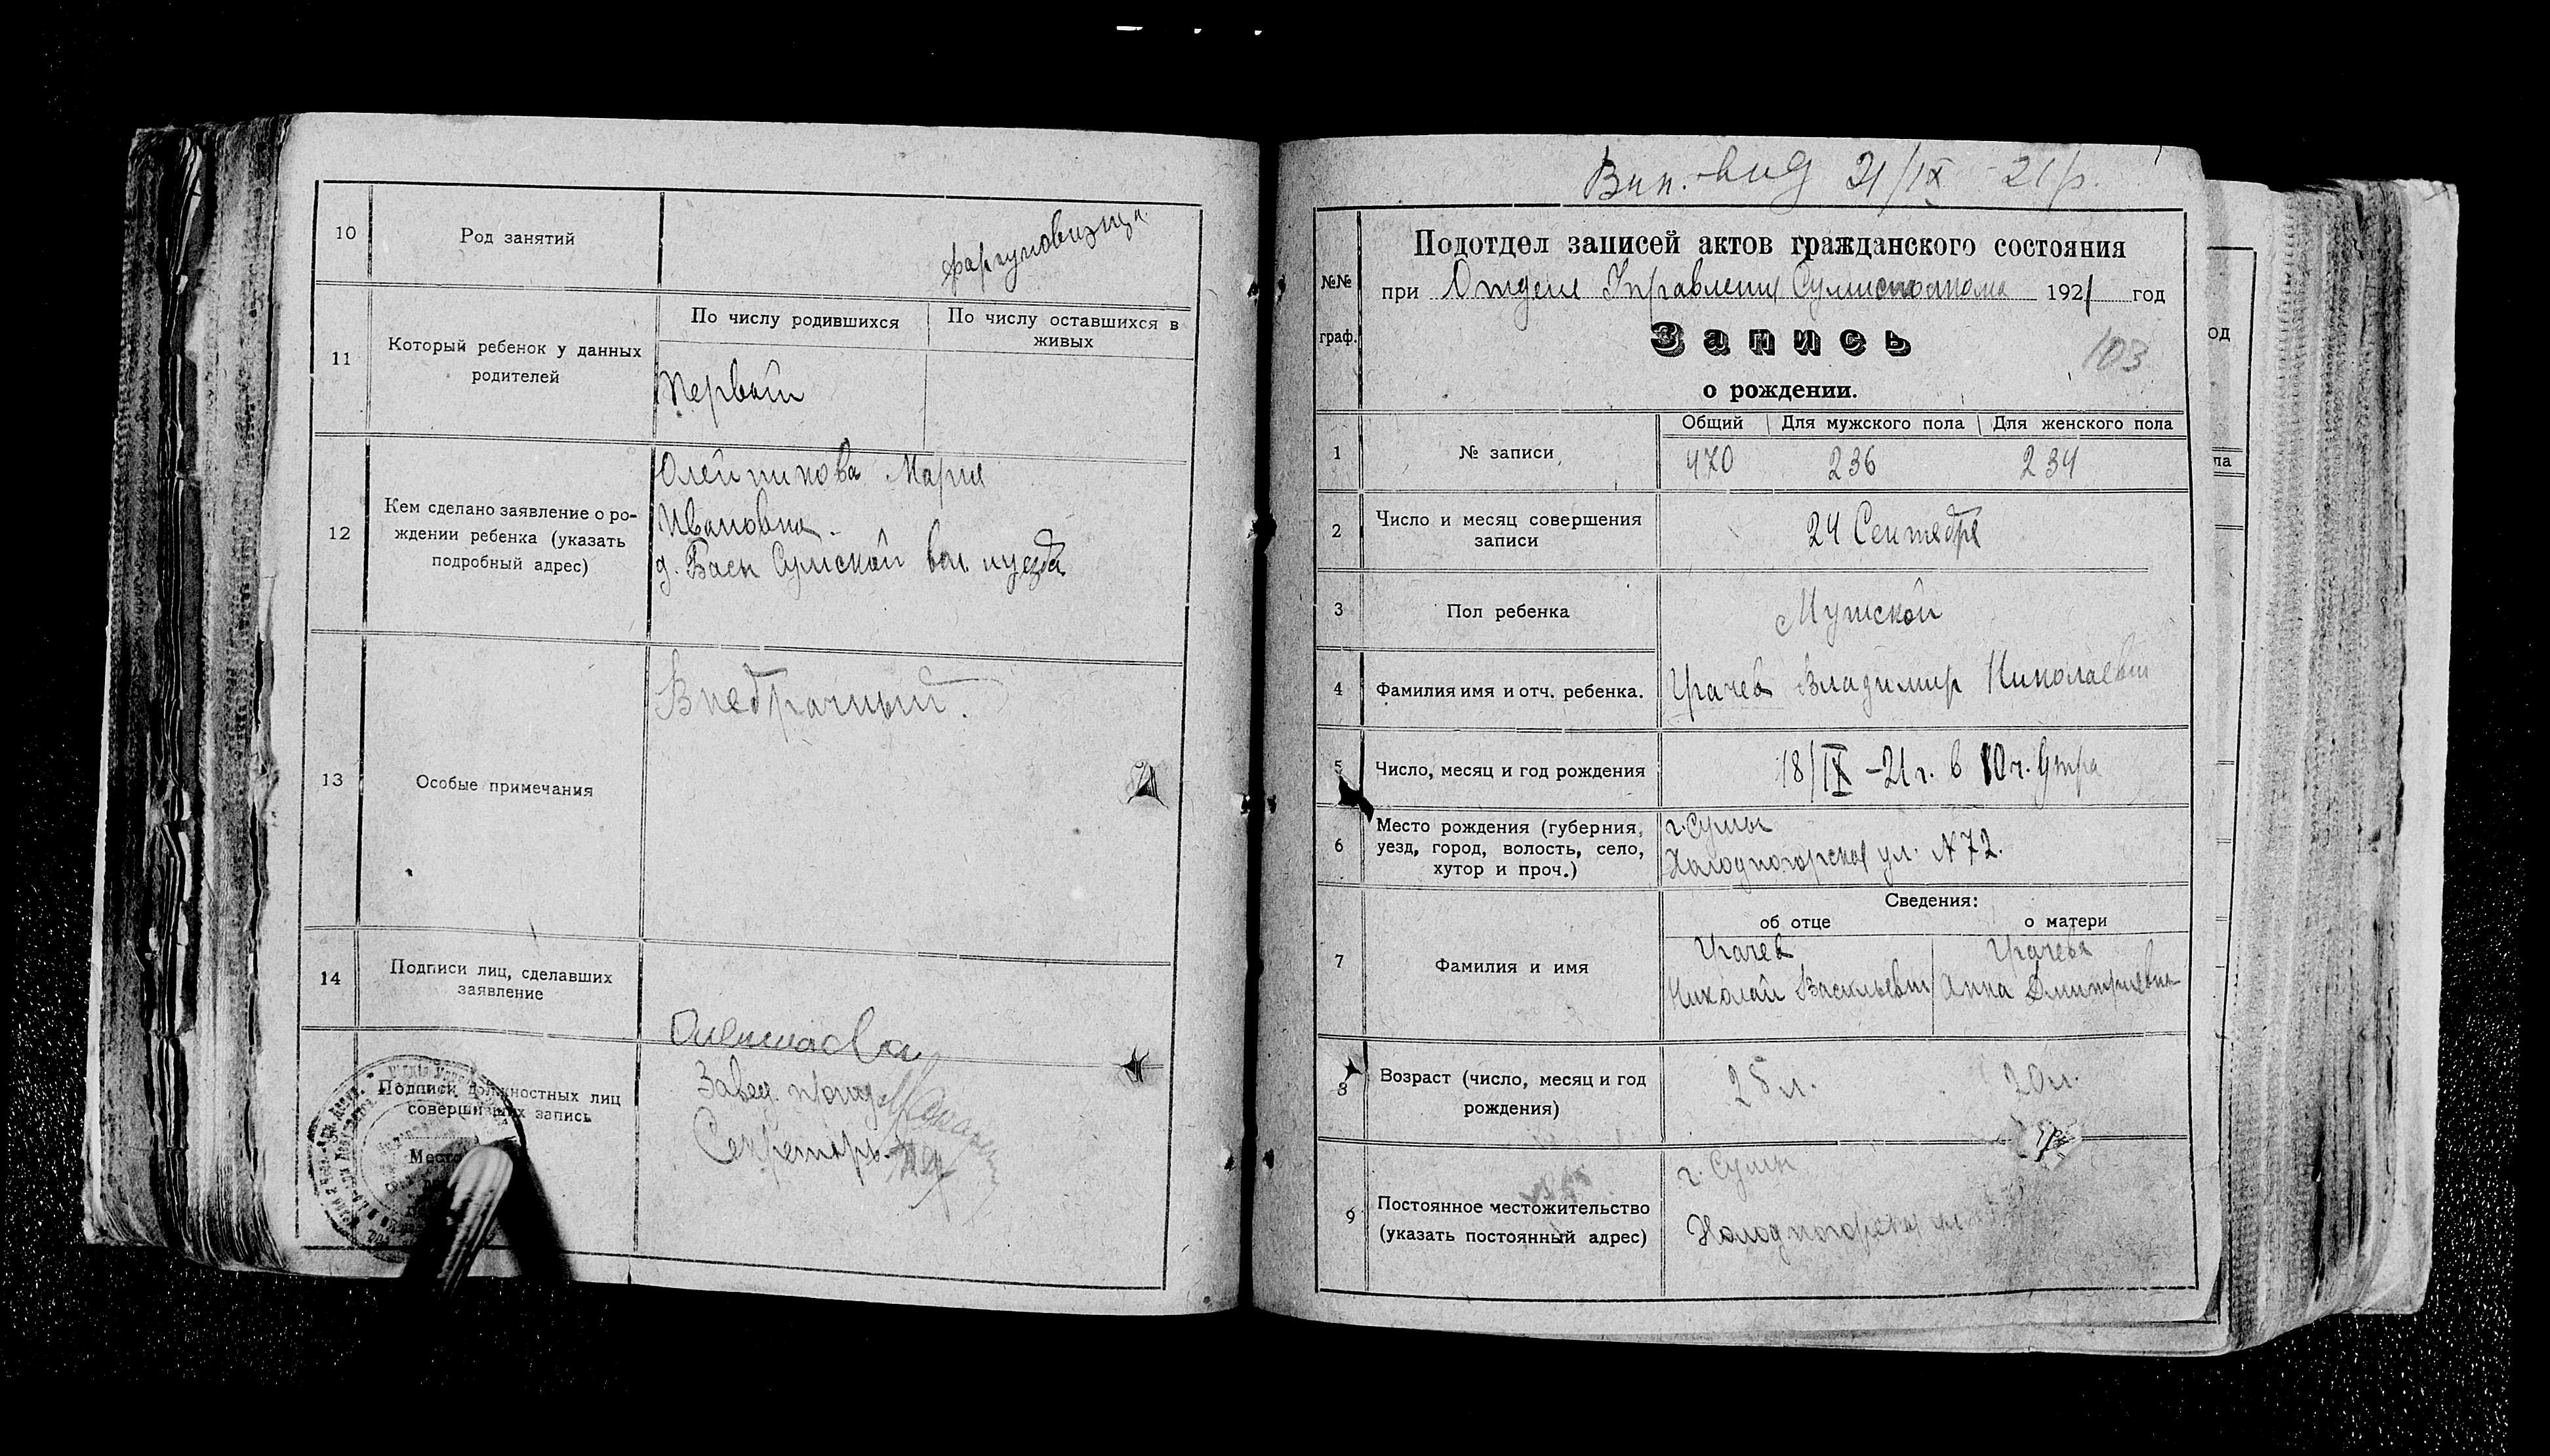 10
Род занятий
11
Который ребенок у данных
родителей
По числу родившихся
По числу оставшихся в
живых
Первый
12
Кем сделано заявление о ро-
ждении ребенка (указать
подробный адрес)
Олейникова Мария
Ивановна.
д. Басы Сумской вол. и уезда
13
Особые примечания
Внебрачный.
14
Подписи лиц, сделавших
заявление
Подписи должностных лиц
совершивших запись
Завед.
Секретарь
Место
Вип. вид 21/IX 21 р.
Подотдел записей актов гражданского состояния
№№
граф.
при Отделе Управления 1921 год
Запись
103
о рождении.
1
№ записи
Общий
Для мужского пола
Для женского пола
470
236
234
2
Число и месяц совершения
записи
24 Сентября
3
Пол ребенка
Мужской
4
Фамилия имя и отч. ребенка.
Грачев Владимир Николаевич
5
Число, месяц и год рождения
18/IX –21 г. в 10 ч. утра
6
Место рождения (губерния,
уезд, город, волость, село,
хутор и проч.)
г. Сумы
Холодногорская ул. № 72.
7
Фамилия и имя
Сведения:
об отце
о матери
Грачев
Николай Васильевич
Грачева
Анна Дмитриевна
8
Возраст (число, месяц и год
рождения)
25 л.
20 л.
9
Постоянное местожительство
(указать постоянный адрес)
г. Сумы
Холодногорская
од
ла